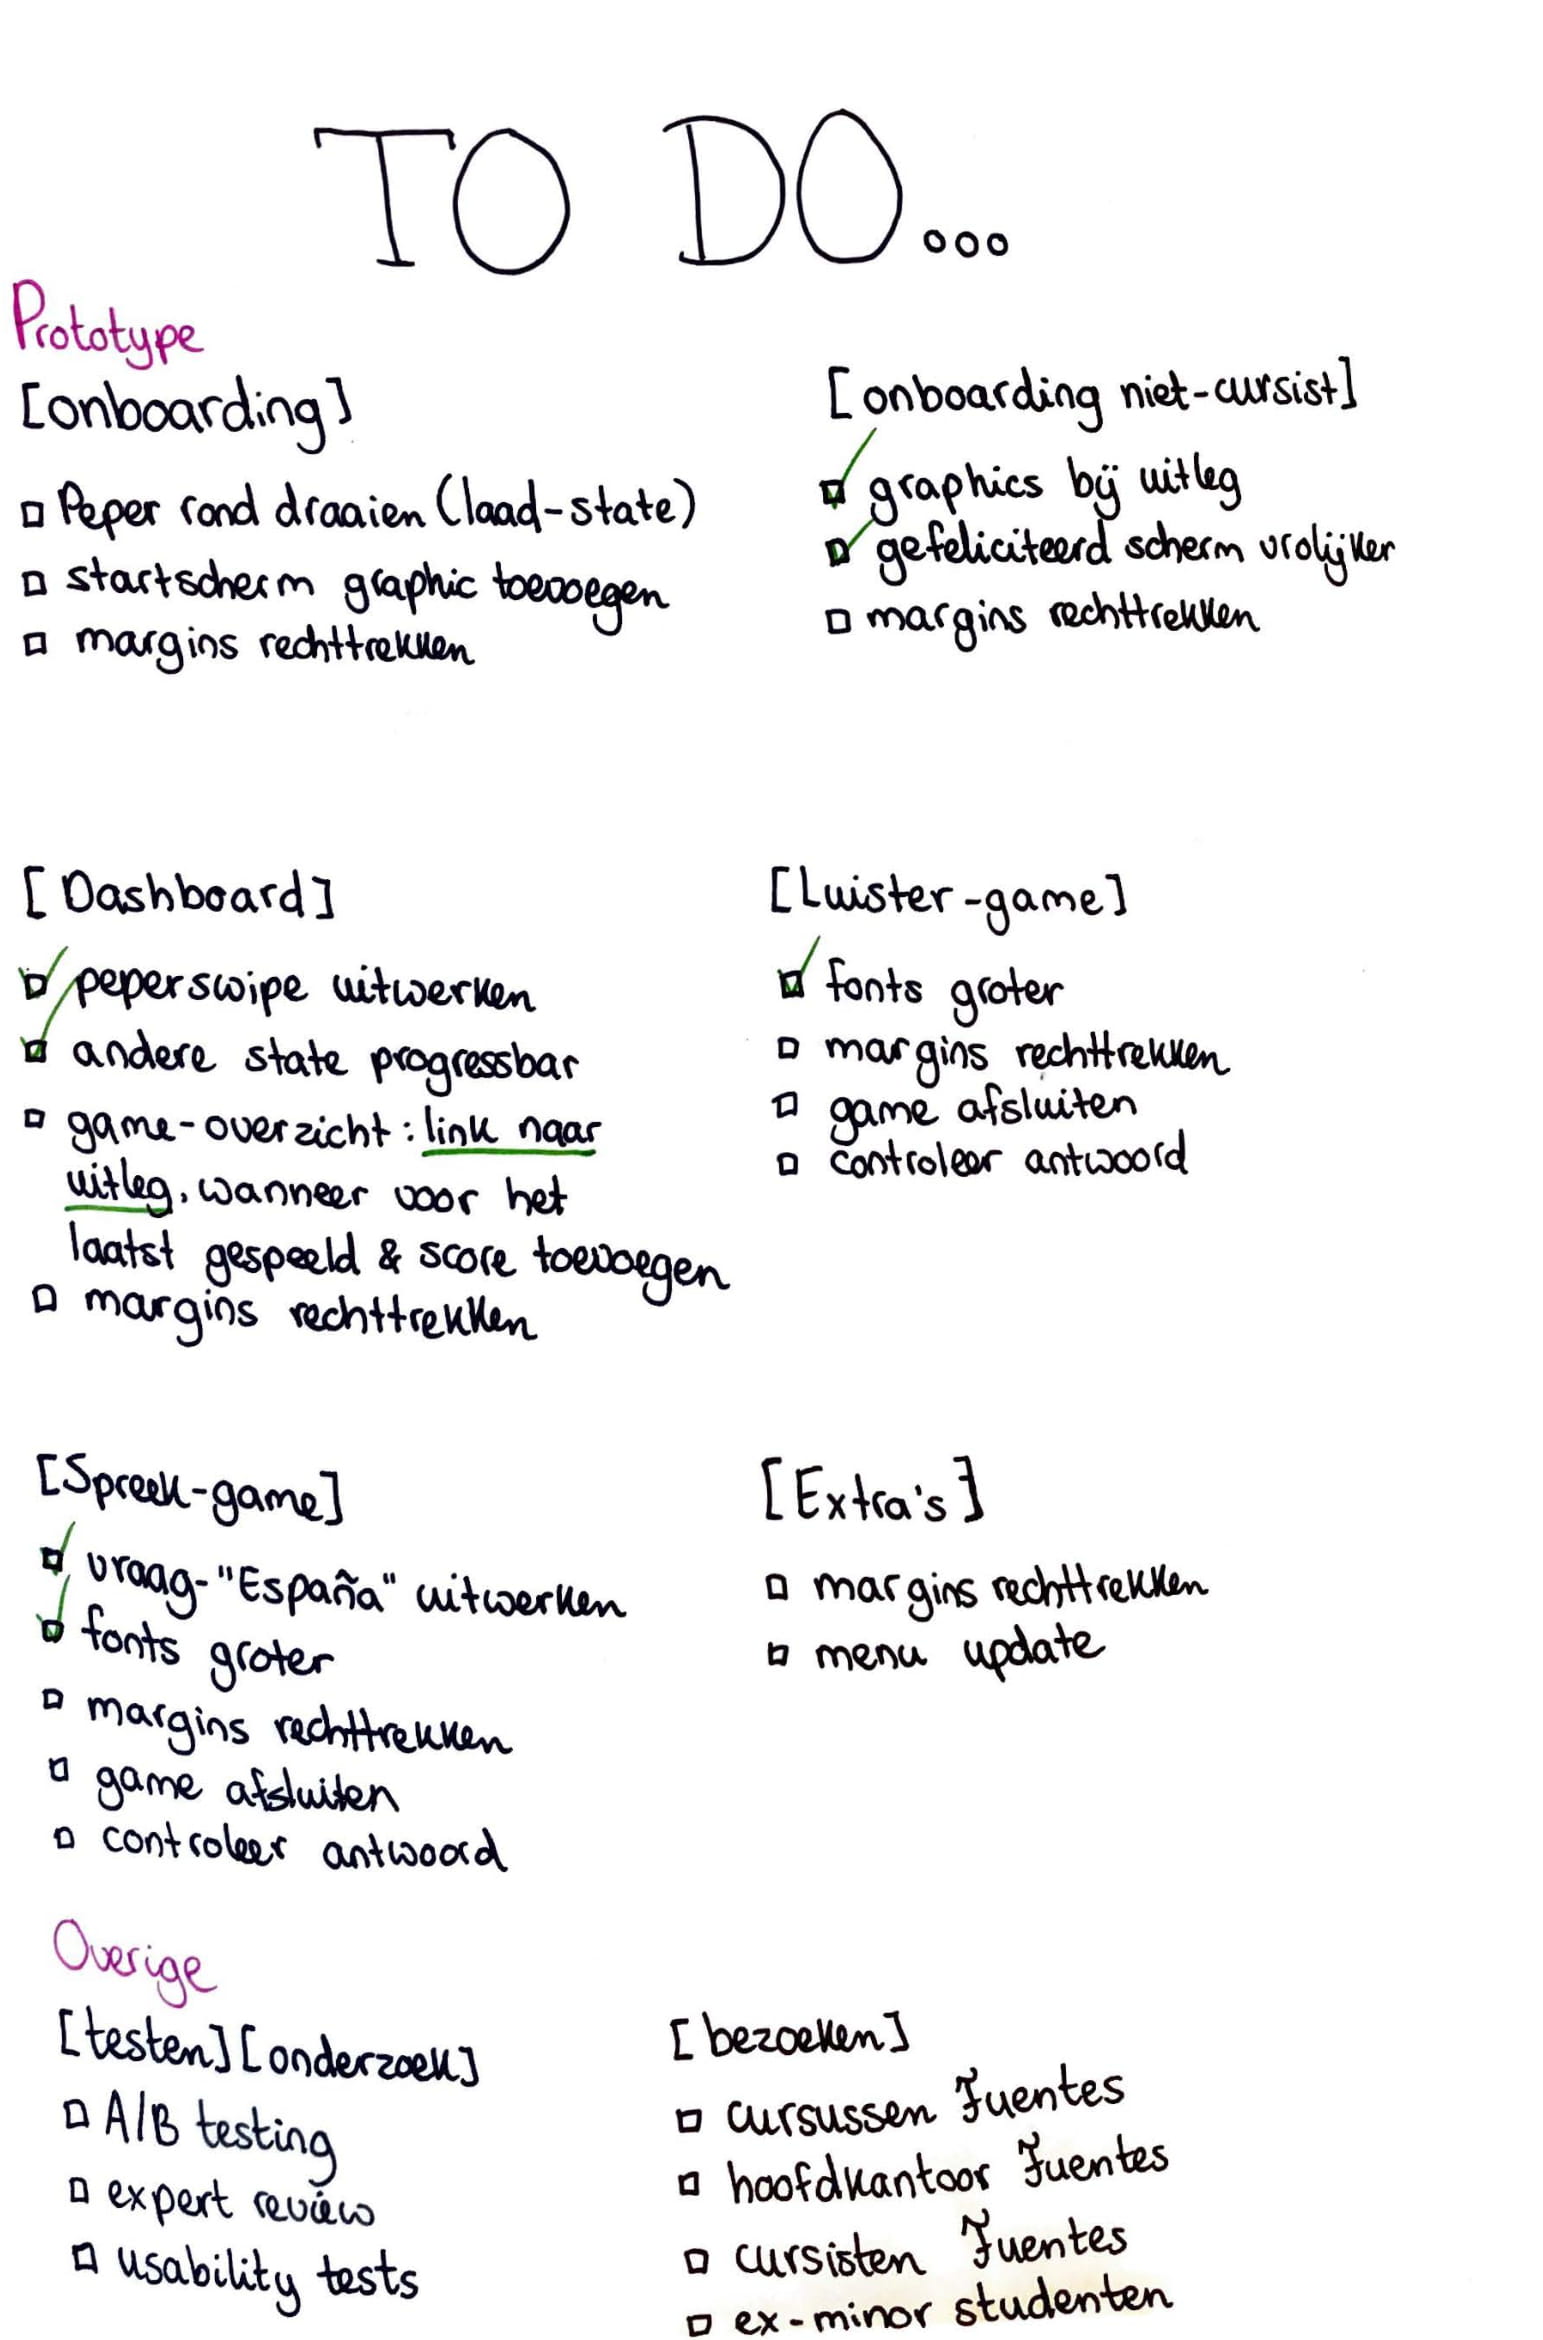 TO DO...
Prototype
[onboarding]
□ Peper rond draaien (laad-state)
□ startscherm graphic toevoegen
□ margins rechttrekken
[onboarding niet-cursist]
☑ graphics bij uitleg
☑ gefeliciteerd scherm vrolijker
□ margins rechttrekken
[Dashboard]
☑ peperswipe uitwerken
☑ andere state progressbar
□ game-overzicht: link naar
uitleg, wanneer voor het
laatst gespeeld & score toevoegen
□ margins rechttrekken
[Luister-game]
☑ fonts groter
□ margins rechttrekken
□ game afsluiten
□ controleer antwoord
[Spreek-game]
☑ vraag-"España" uitwerken
☑ fonts groter
□ margins rechttrekken
□ game afsluiten
□ controleer antwoord
[Extra's]
□ margins rechttrekken
□ menu update
Overige
[testen][onderzoek]
□ A/B testing
□ expert review
□ usability tests
[bezoeken]
□ cursussen Fuentes
□ hoofdkantoor Fuentes
□ cursisten Fuentes
□ ex-minor studenten